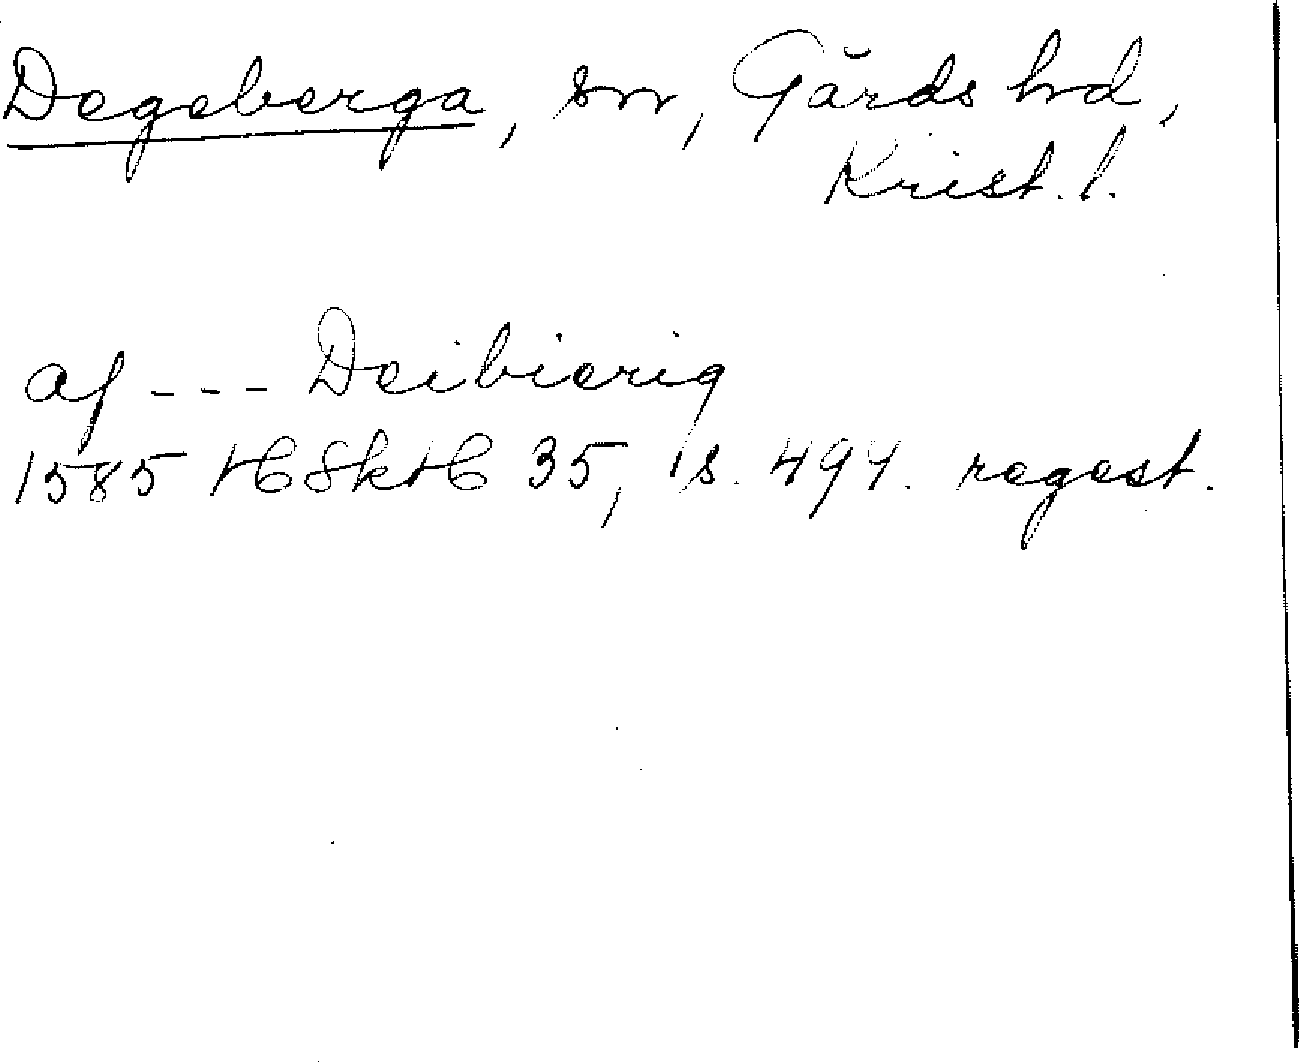 Degeberga, sn, Gärds hd,
Krist. l.
af --- Deibierig
1585 HH 35, s. 494. regest.